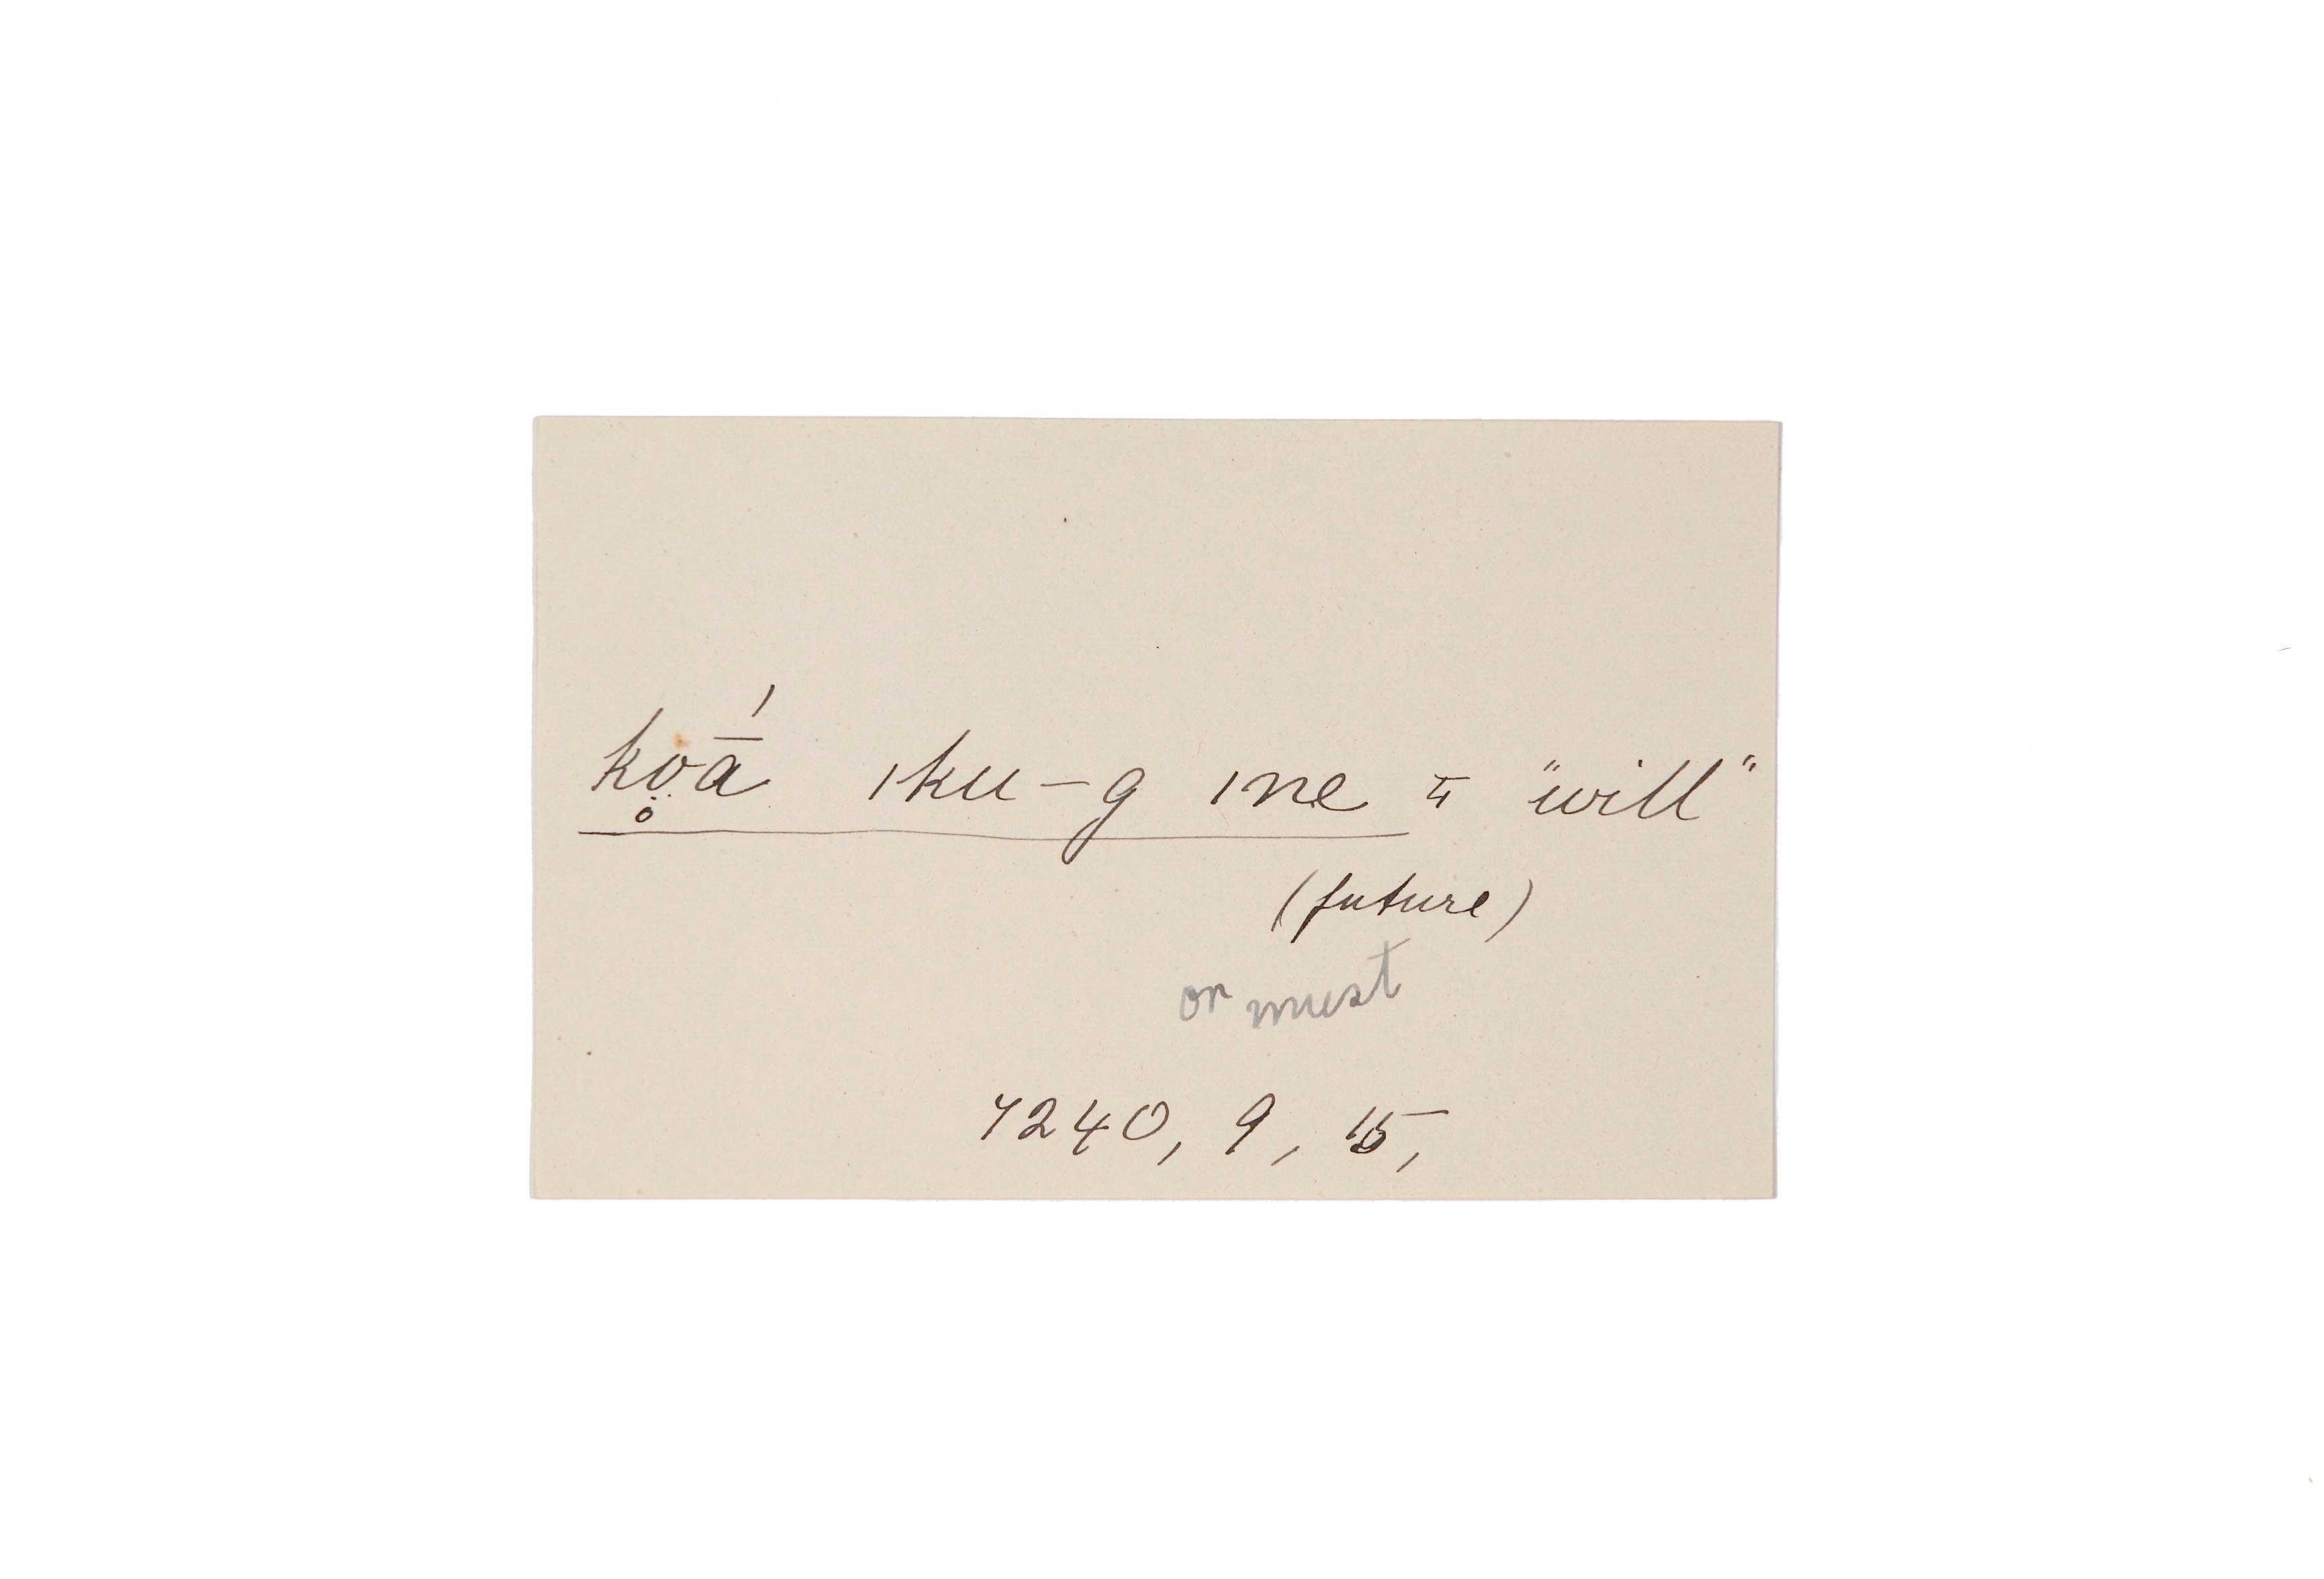 kọā́ ıku-g ıne = "will"
(future)
or must
7240, 9, 15,